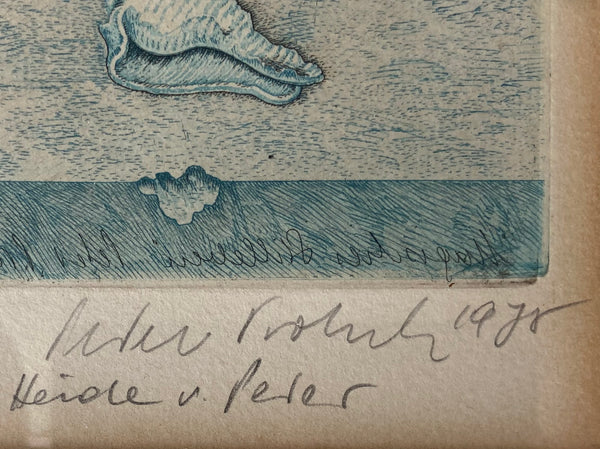 "Magisches Stilleben" Peter
Peter Proksch 1978
Heide v. Peter